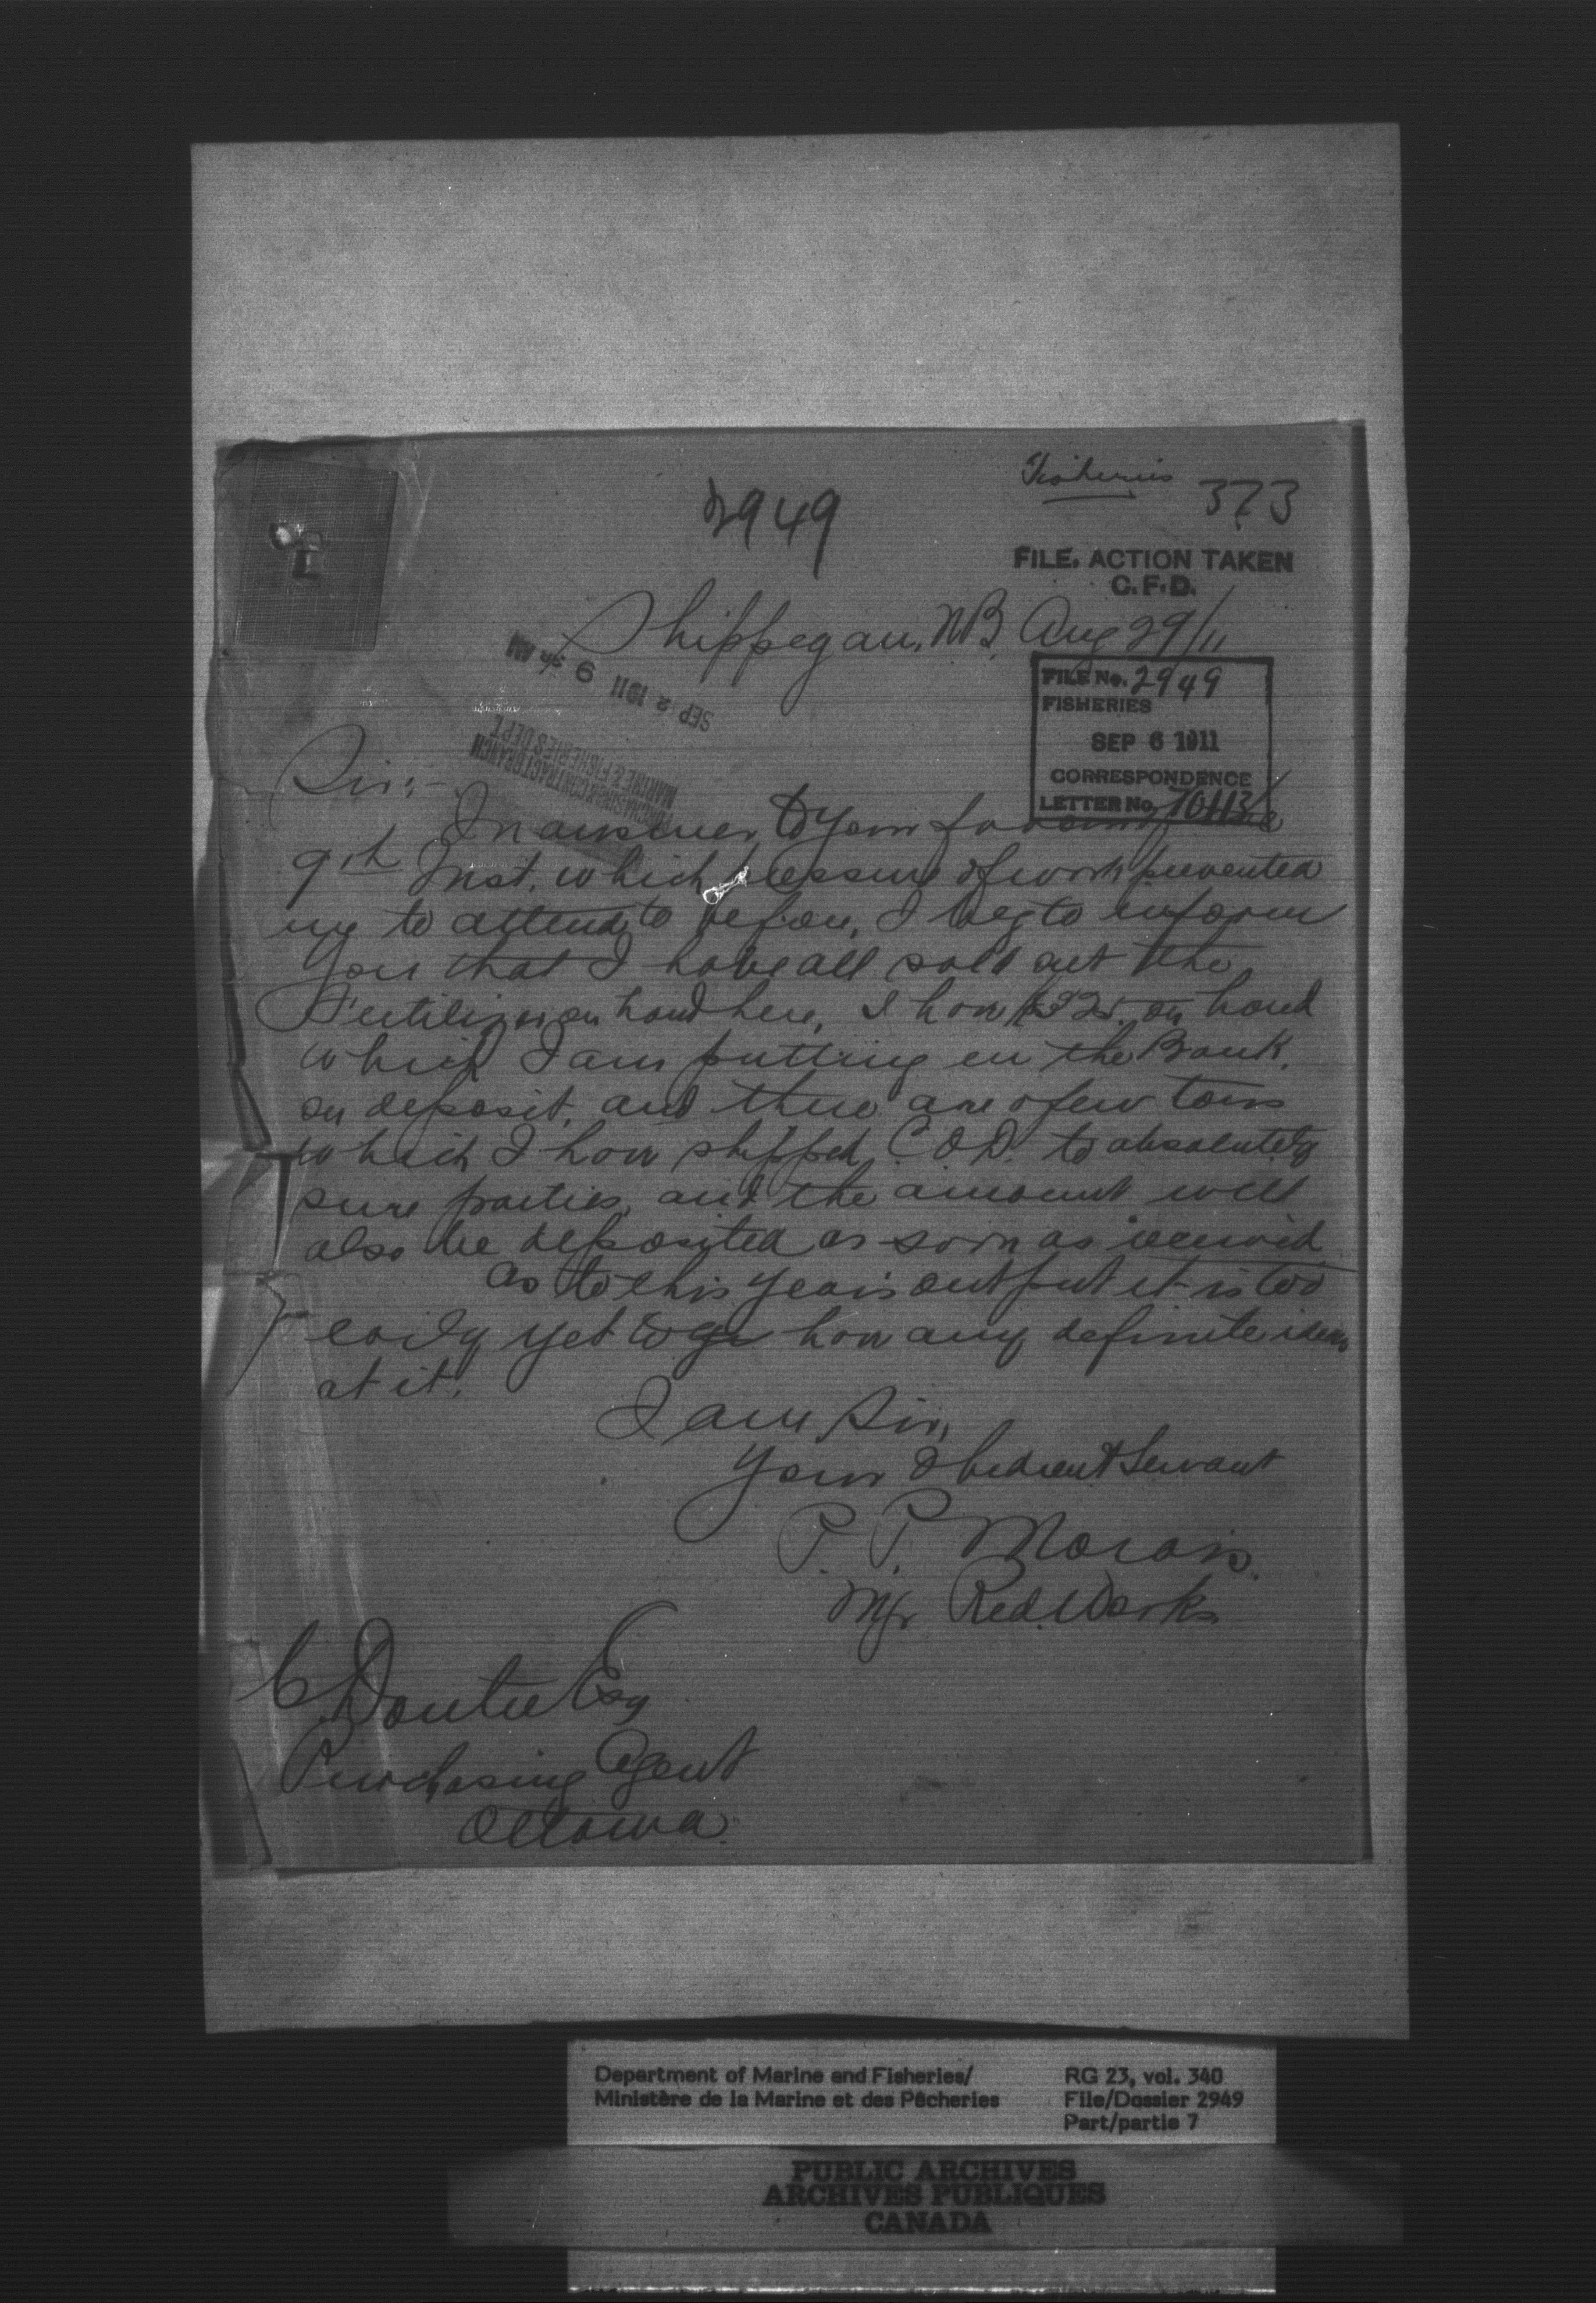 Fisheries
373
2949
FILE. ACTION TAKEN
C.F.D.
Shippegan, NB, Aug 29/11
FILE No. 2949
FISHERIES
SEP 6 1911
CORRESPONDENCE
LETTER No.
SEP 2 1911 9 AM
PURCHASING & CONTRACT BRANCH
MARINE & FISHERIES DEPT.
Sir:-
In answer to your favour of the
9th Inst. which pressure of work prevented
me to attend to before, I beg to inform
you that I have all sold out the
Fertilizer on hand here, I have on hand
which I am putting in the Bank
on deposit, and there are a few tons
which I have shipped C.O.D. to absolutely
sure parties, and the amount will
also be deposited as soon as received
As to this years output it is too
early yet to have any definite idea
at it.
I am Sir,
Your Obedient Servant
P. P. Morais.
Mgr Red. Works
C Doutre Esq
Purchasing Agent
Ottawa.
Department of Marine and Fisheries/
Ministère de la Marine et des Pêcheries
RG 23, vol. 340
File/Dossier 2949
Part/partie 7
PUBLIC ARCHIVES
ARCHIVES PUBLIQUES
CANADA